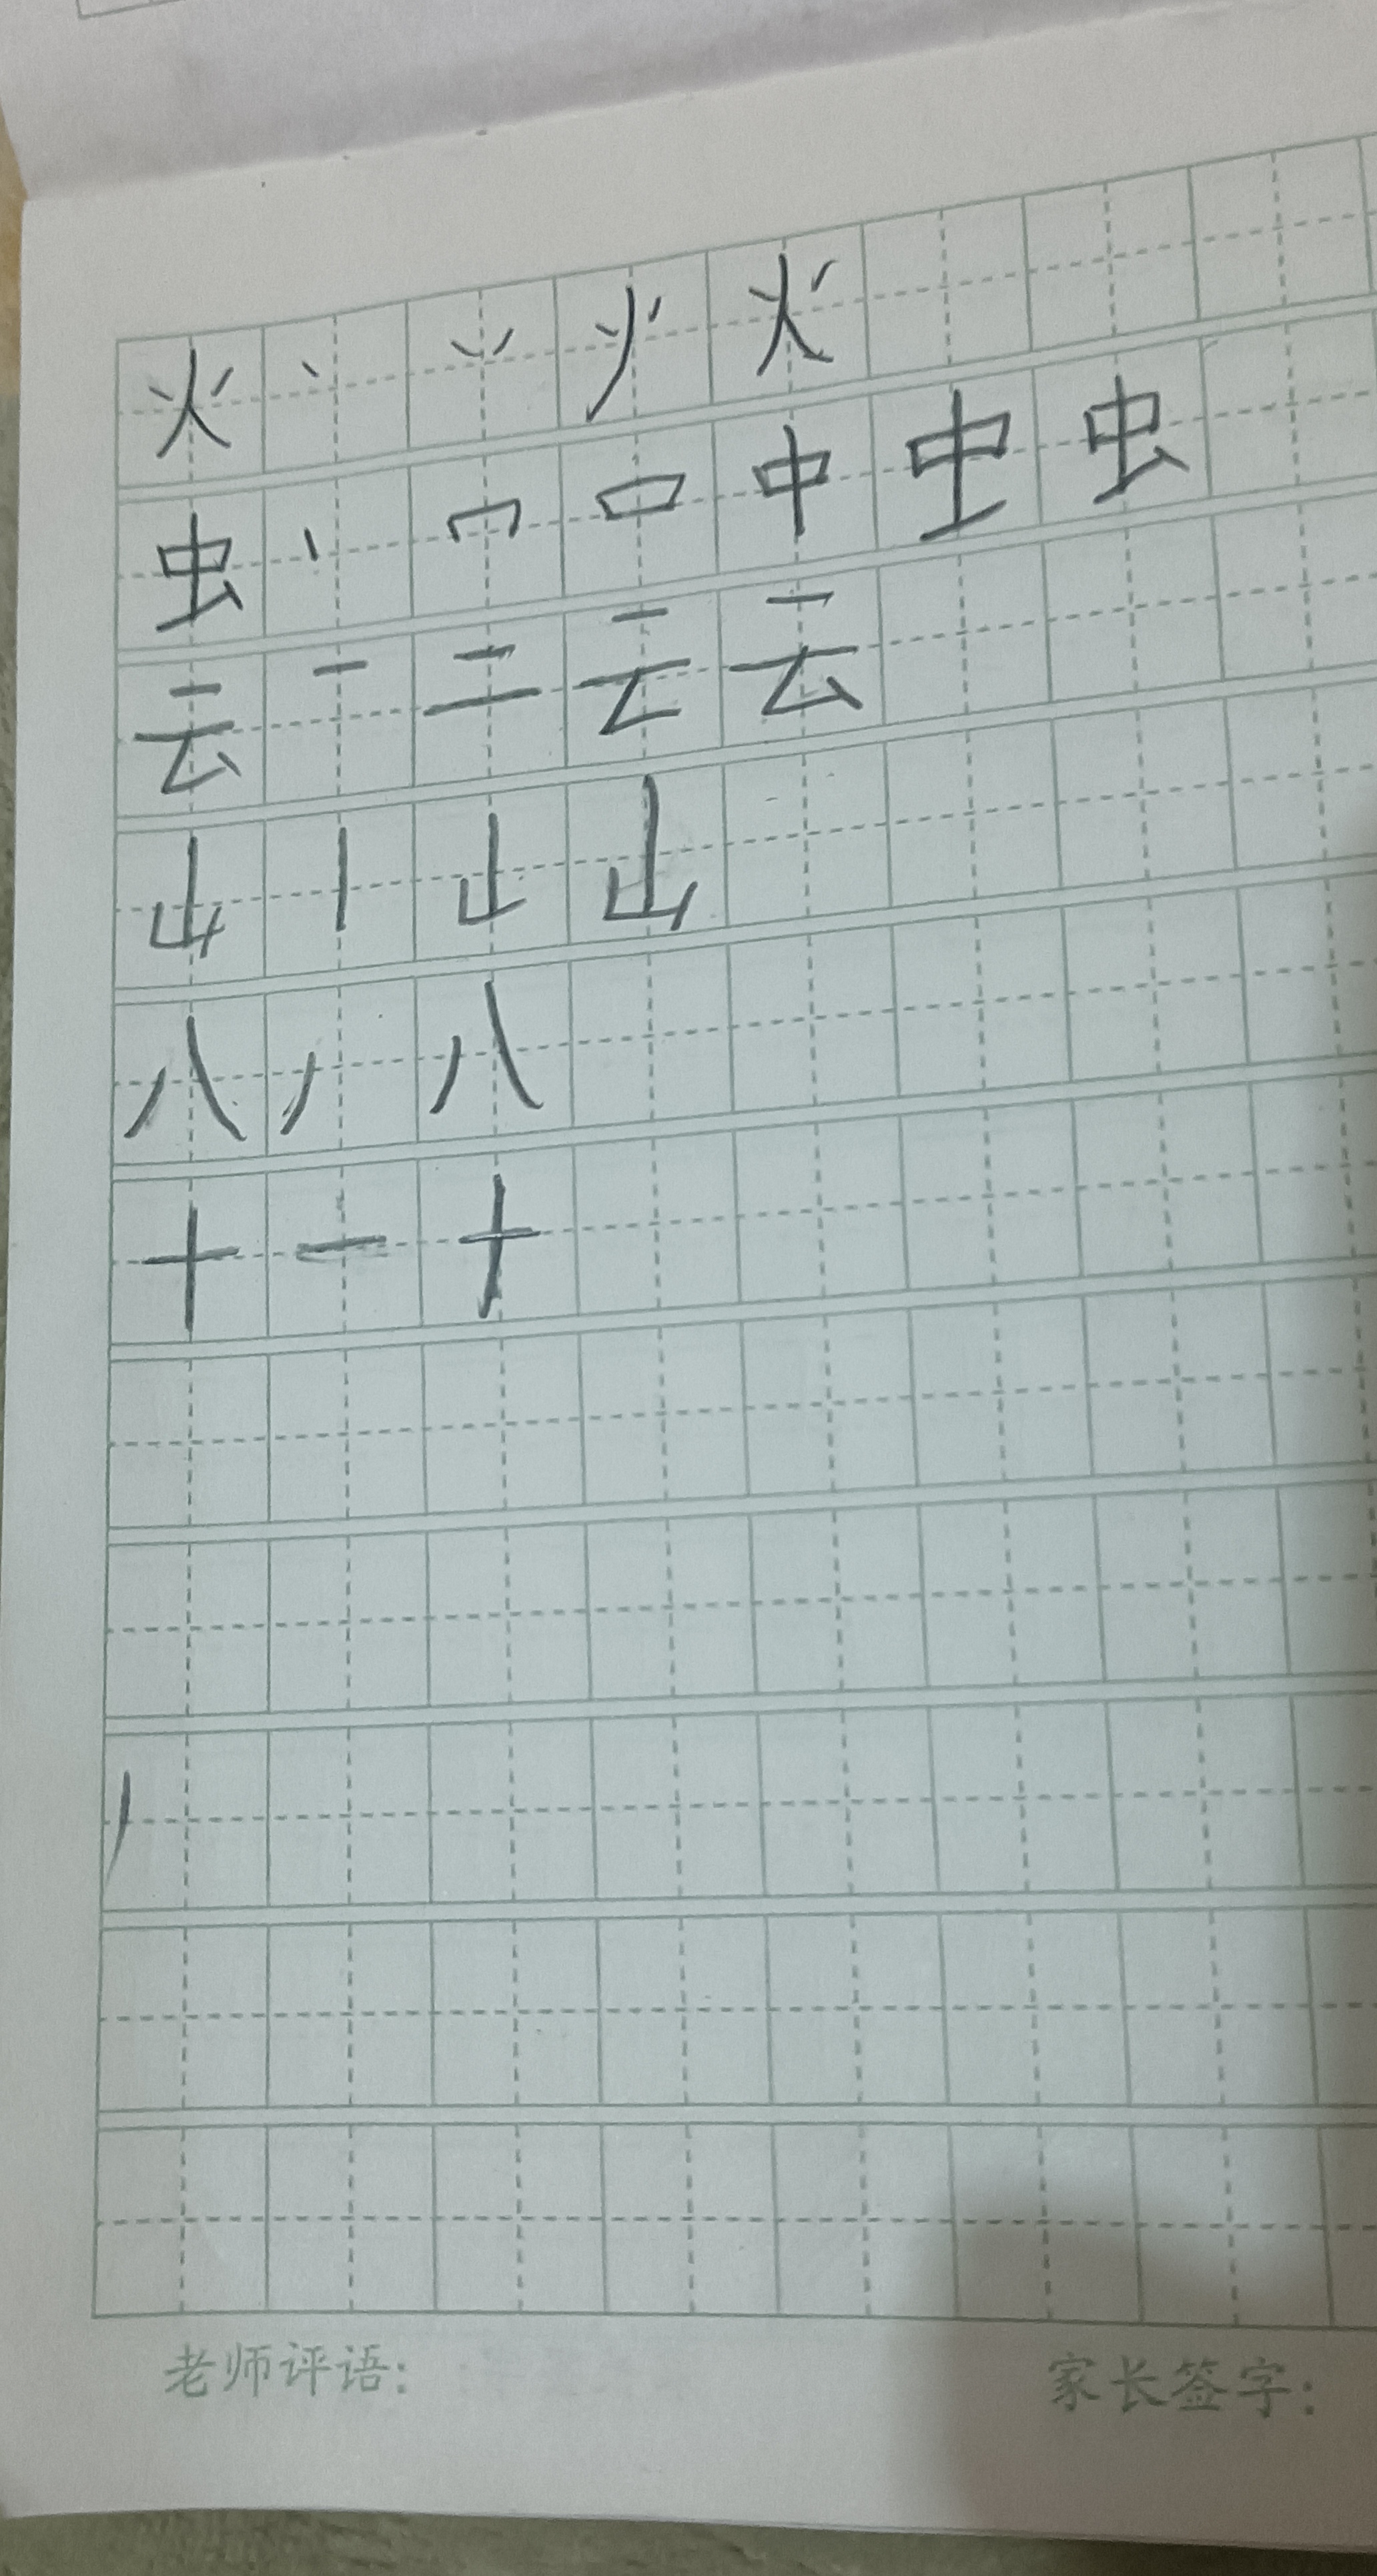 火 丶 丷 火
虫 丨 冖 口 中 虫
云 一 二 云
山 丨 山
八 丿 八
十 一 十
丿
老师评语: 家长签字: